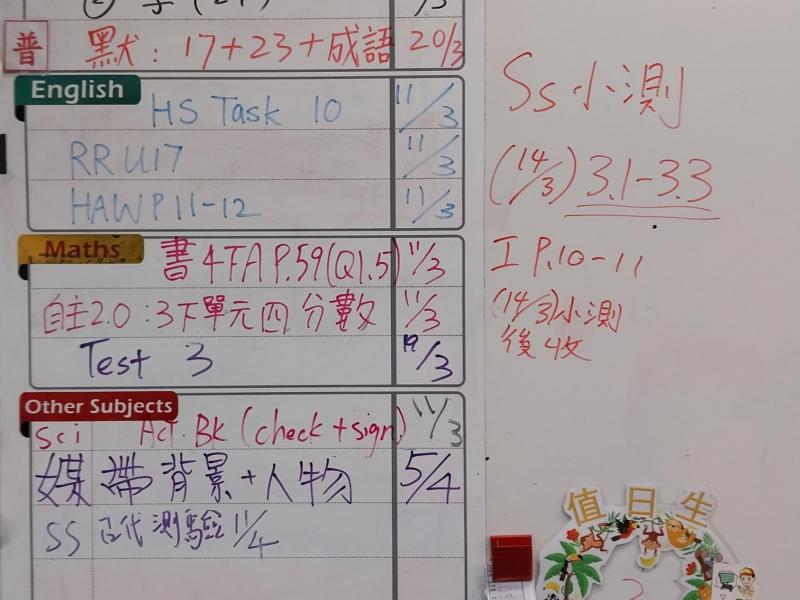 普 默：17+23+成語 20/3
English
HS Task 10 11/3
RR U17 11/3
HAW P11-12 11/3
Maths
書4下A P.59(Q1.5) 11/3
自主2.0：3下單元四 分數 11/3
Test 3 19/3
Other Subjects
Sci Act. BK (check + sign) 11/3
媒 帶背景+人物 5/4
SS 古代測驗 11/4
Ss小測
(14/3) 3.1-3.3
I P.10-11
(14/3)小測
後收
值日生